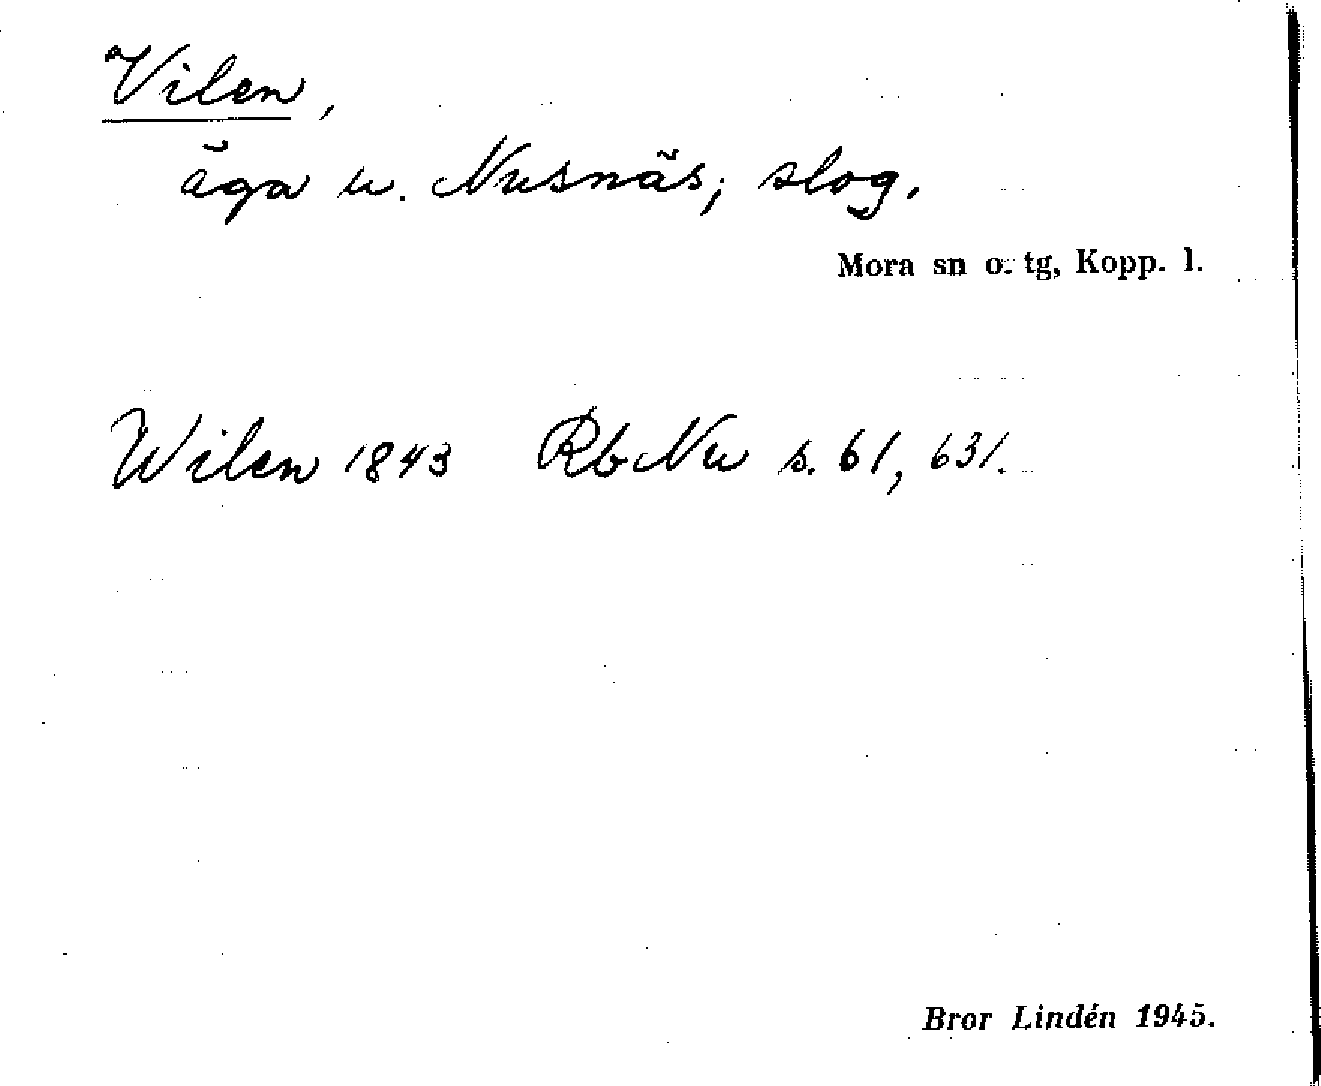 Vilen,
äga u. Nusnäs; slog.
Mora sn o. tg, Kopp. l.
Wilen 1843 Rb Nu s. 61, 631.
Bror Lindén 1945.